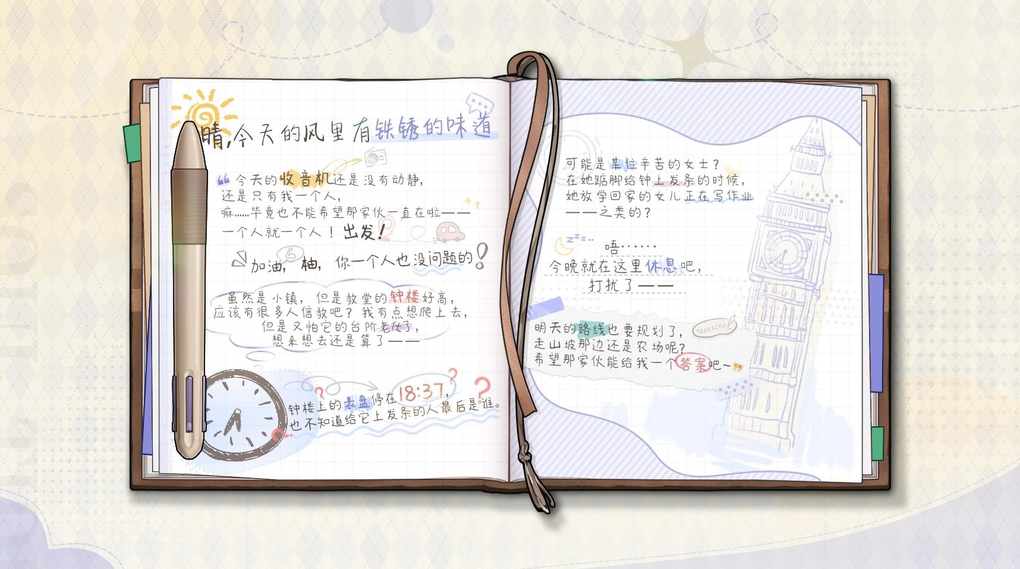 晴,今天的风里有铁锈的味道
今天的收音机还是没有动静,
还是只有我一个人,
嘛……毕竟也不能希望那家伙一直在啦——
一个人就一个人！出发！
加油，柚，你一个人也没问题的！
虽然是小镇，但是教堂的钟楼好高,
应该有很多人信教吧？我有点想爬上去,
但是又怕它的台阶老化了,
想来想去还是算了——
钟楼上的表盘停在18:37,
也不知道给它上发条的人最后是谁。
可能是某位辛苦的女士？
在她踮脚给钟上发条的时候,
她放学回家的女儿正在写作业
——之类的？
zzz
唔……
今晚就在这里休息吧,
打扰了——
明天的路线也要规划了,
走山坡那边还是农场呢？
希望那家伙能给我一个答案吧~